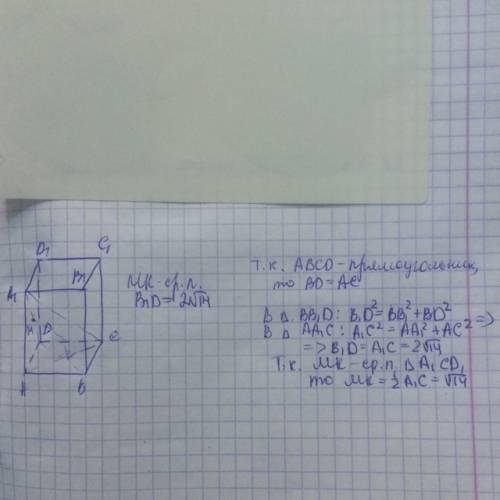 D₁ C₁
A₁ B₁
М D C
К
A B
МК-ср.п.
B₁D = 2√14
т.к. ABCD-прямоугольник,
то BD=AC
В △ BB₁D: B₁D²=BB₁²+BD² =>
В △ AA₁C: A₁C²=AA₁²+AC²
=> B₁D=A₁C=2√14
Т.к. МК-ср.п. △ A₁CD,
то МК=½A₁C=√14